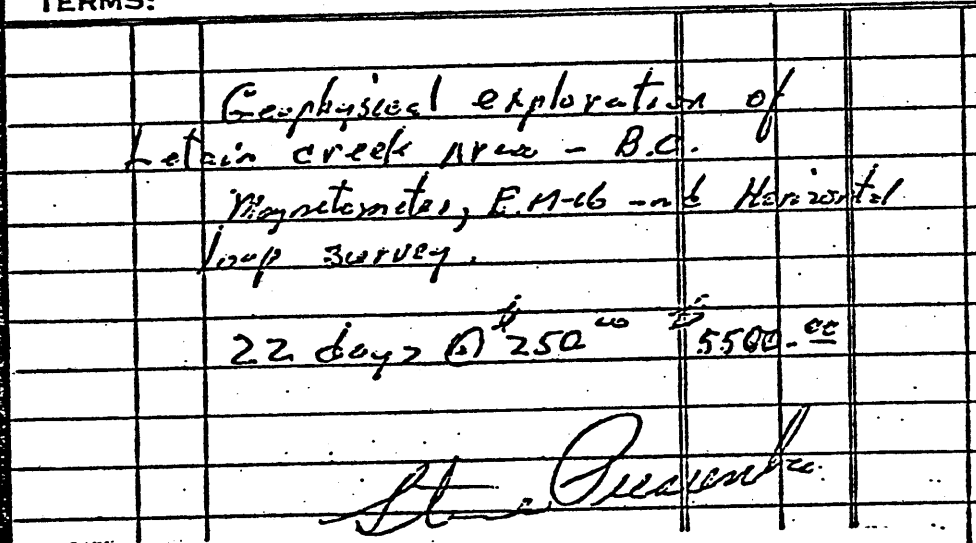 TERMS:
Geophysical exploration of
Letain creek Area - B.C.
Magnetometer, E.M-16 and Horizontal
loop survey.
22 days @ $250 00 $5500.00